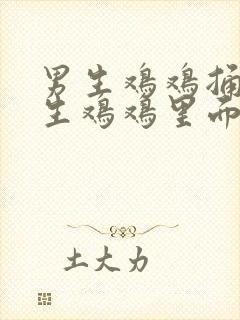 男生鸡鸡捅
生鸡鸡里而
土大力